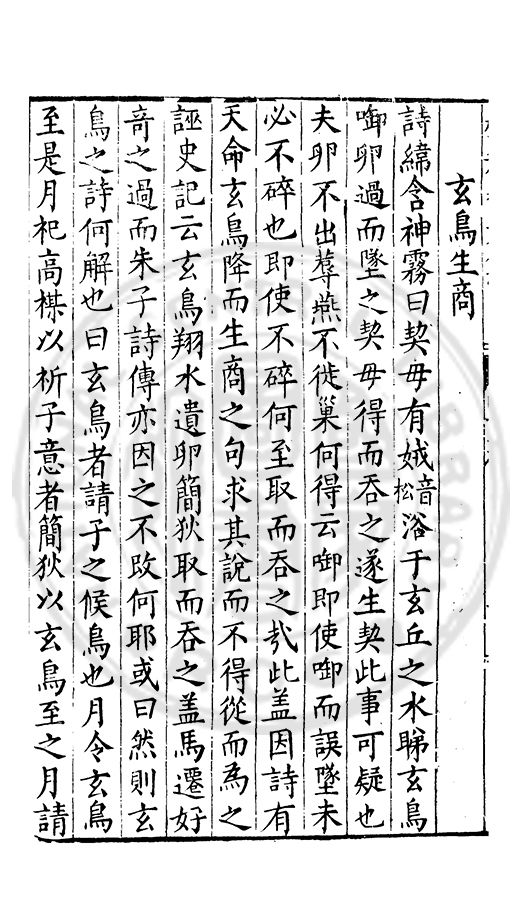 玄鳥生商
詩緯含神霧曰契母有娀音松浴于玄丘之水睇玄鳥
啣卵過而墜之契母得而吞之遂生契此事可疑也
夫卵不出蓐燕不徙巢何得云啣即使啣而誤墜未
必不碎也即使不碎何至取而吞之㢤此盖因詩有
天命玄鳥降而生商之句求其說而不得從而為之
誣史記云玄鳥翔水遺卵簡狄取而吞之盖馬遷好
竒之過而朱子詩傳亦因之不改何耶或曰然則玄
鳥之詩何解也曰玄鳥者請子之候鳥也月令玄鳥
至是月祀高禖以祈子意者簡狄以玄鳥至之月請